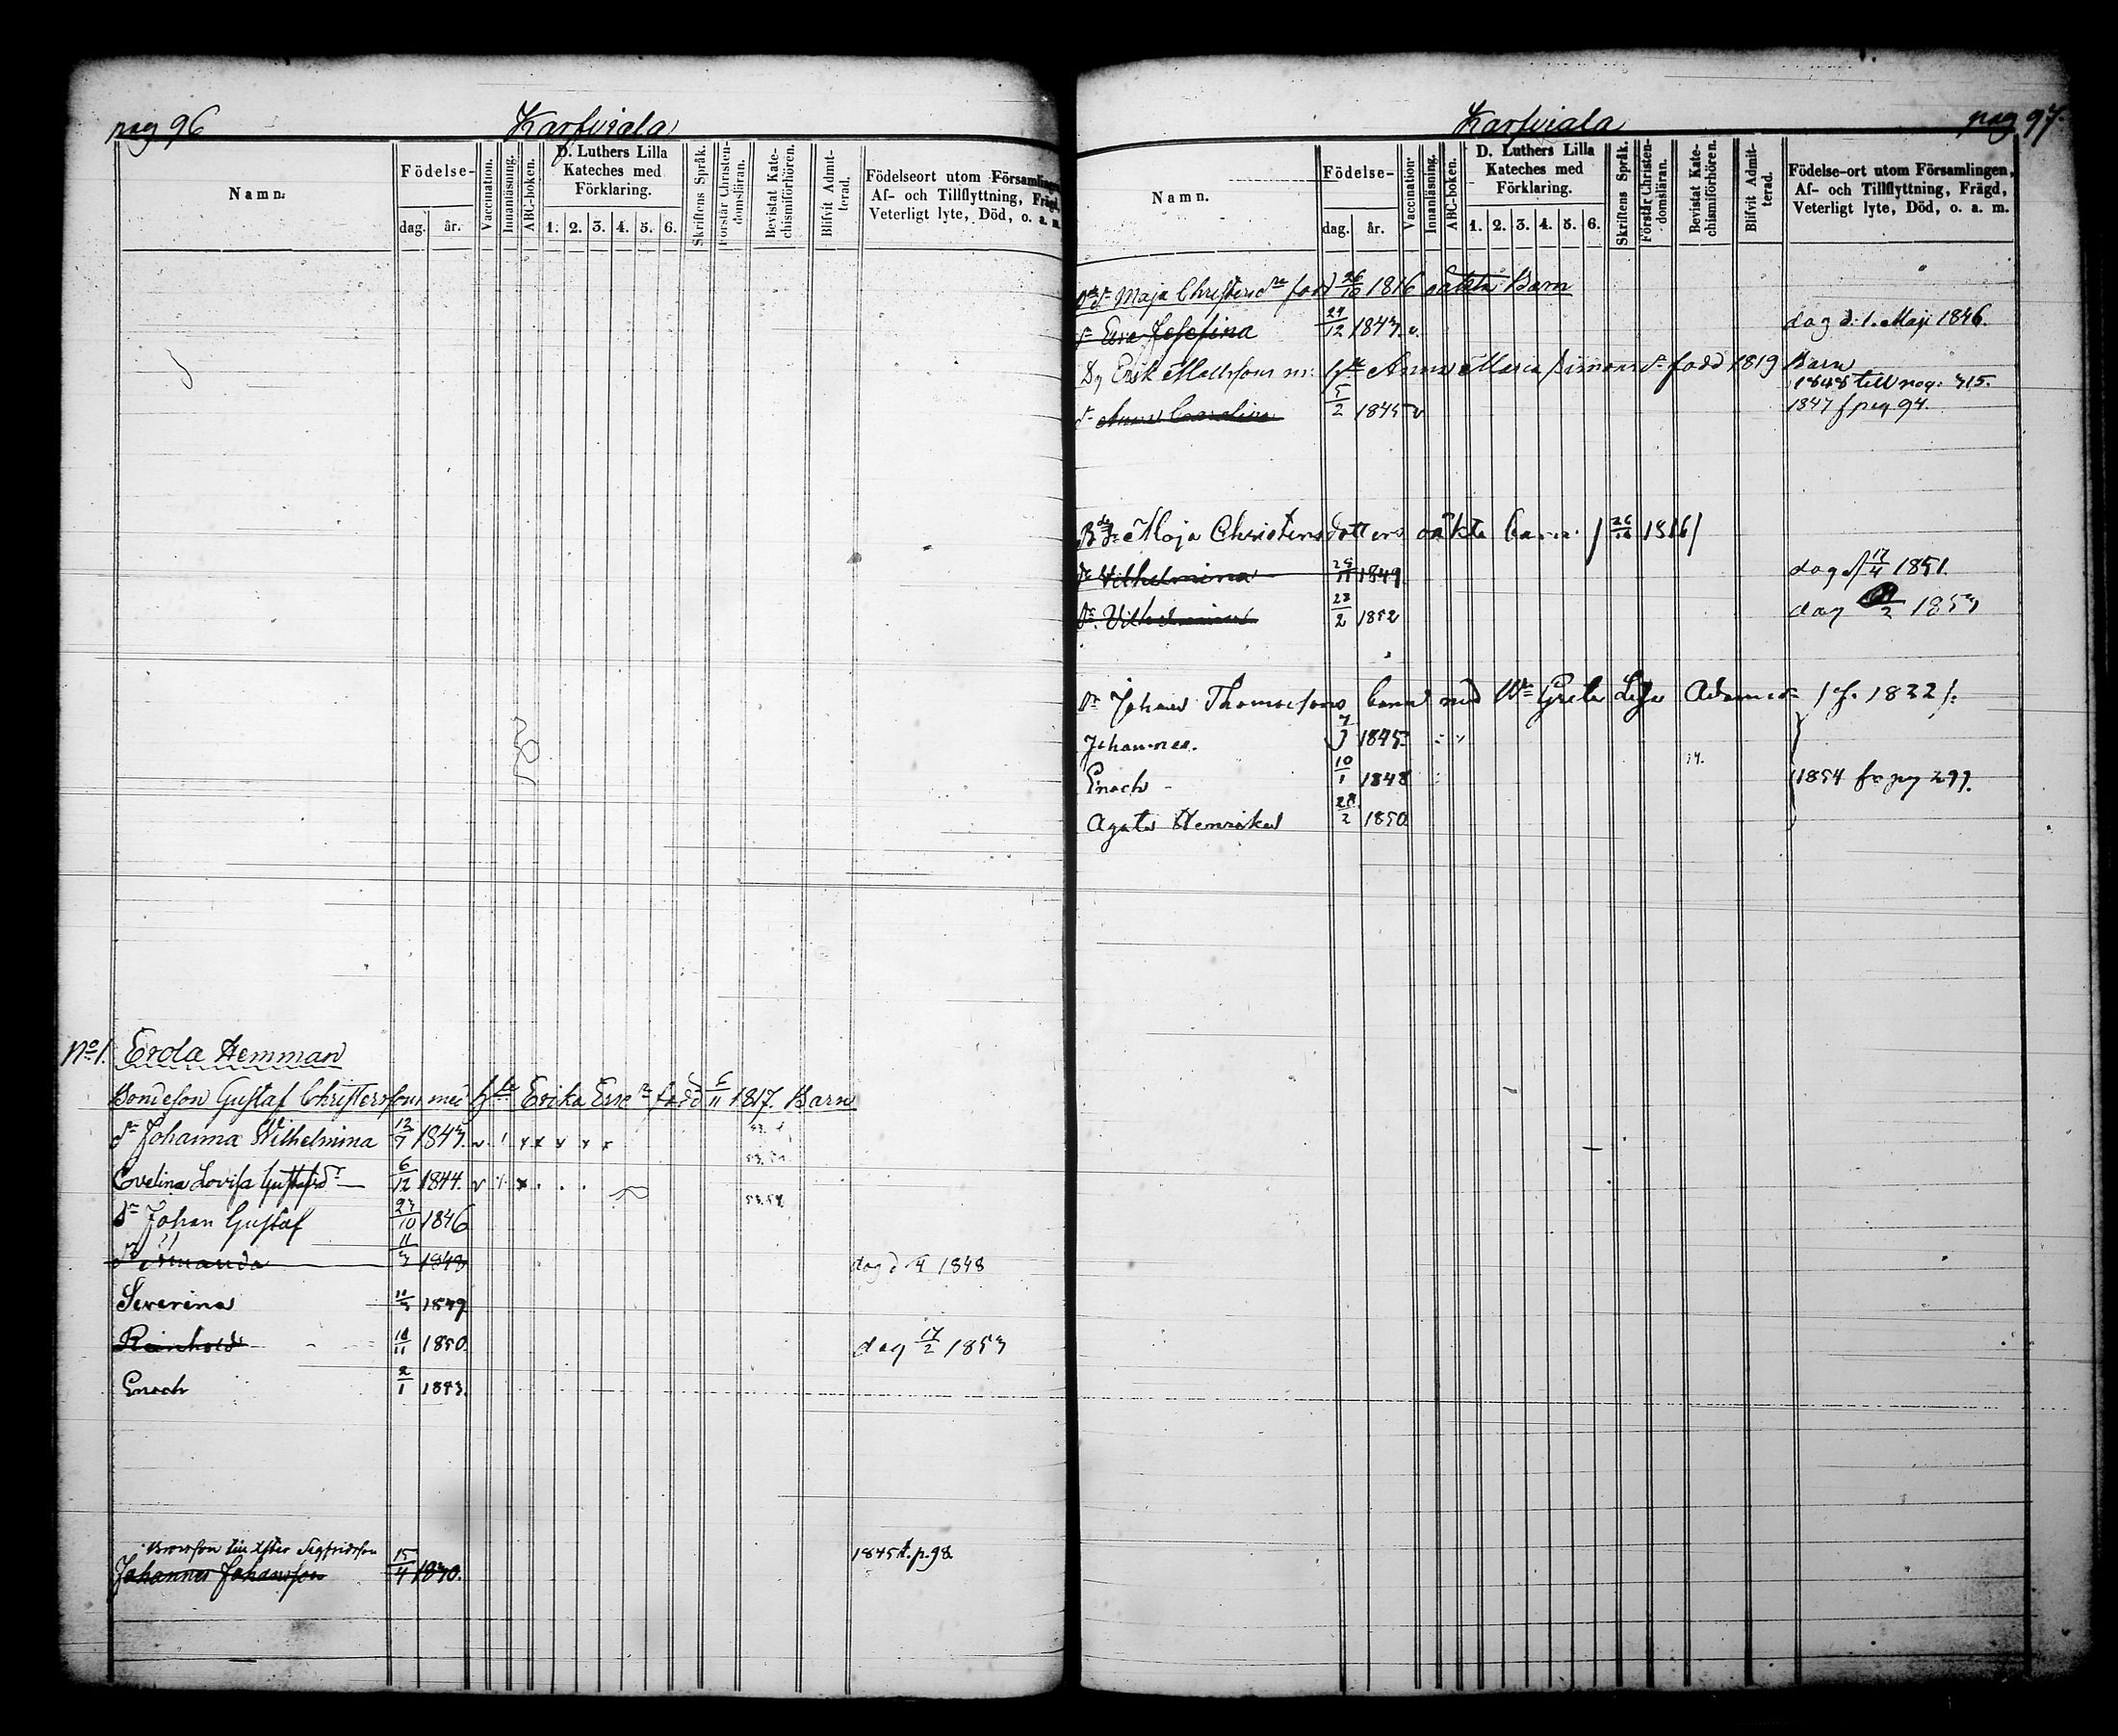 pag 96
Karfviala
Namn.
Födelse-
dag.
år.
Vaccination.
Innanläsning.
ABC-boken.
D. Luthers Lilla
Kateches med
Förklaring.
1. 2. 3. 4. 5. 6.
Skriftens Språk.
Förstår Christen-
domsläran.
Bevistat Kate-
chismiförhören.
Blifvit Admit-
terad.
Födelseort utom Församlingen
Af- och Tillflyttning, Frägd,
Veterligt lyte, Död, o. a. m.
No 1. Erola Hemman
Bondeson Gustaf Christersson med hu Erika född 5/11 1817. Barn
dr Johanna Wilhelmina 13/7 1843. v
Evelina Lovisa Gustafsdr 6/12 1844. v 53.
Sn Johan Gustaf 23/10 1846 53.54.
Amanda 11/3 1848 dog d 4 1848
Severina 11/3 1849
Reinhold 18/11 1850. dog 17/2 1853
Enoch 2/1 1853.
Johannes Johansson 15/4 1830. 1845 t.p. 98
pag 97.
Karfviala
Namn.
Födelse-
dag.
år.
Vaccination.
Innanläsning.
ABC-boken.
D. Luthers Lilla
Kateches med
Förklaring.
1. 2. 3. 4. 5. 6.
Skriftens Språk.
Förstår Christen-
domsläran.
Bevistat Kate-
chismiförhören.
Blifvit Admit-
terad.
Födelse-ort utom Församlingen,
Af- och Tillflyttning, Frägd,
Veterligt lyte, Död, o. a. m.
Maja Christersdr född 26/10 1816 oäkta Barn
dr Eva Josefina 24/12 1843. v. dog d. 1. Maji 1846.
Erik Mattsson m: Anna Maria Simonsdr född 1819 Barn
1848 till pag: 315.
dr Anna Carolina 5/2 1845 v 1847 f pag 94.
Maja Christersdotters oäkta barn / 26/10 1816 /
dr Vilhelmina 29/11 1849. dog 17/4 1851.
Dr. Vilhelmina 23/2 1852 dog 2 1853
Johan Thomassons barn med Greta Lisa Adamsdr / f. 1822 /.
Johannes. 1845.
Enoch 10/1 1848 1854 fr pag 299.
Agata Henrika 28/2 1850